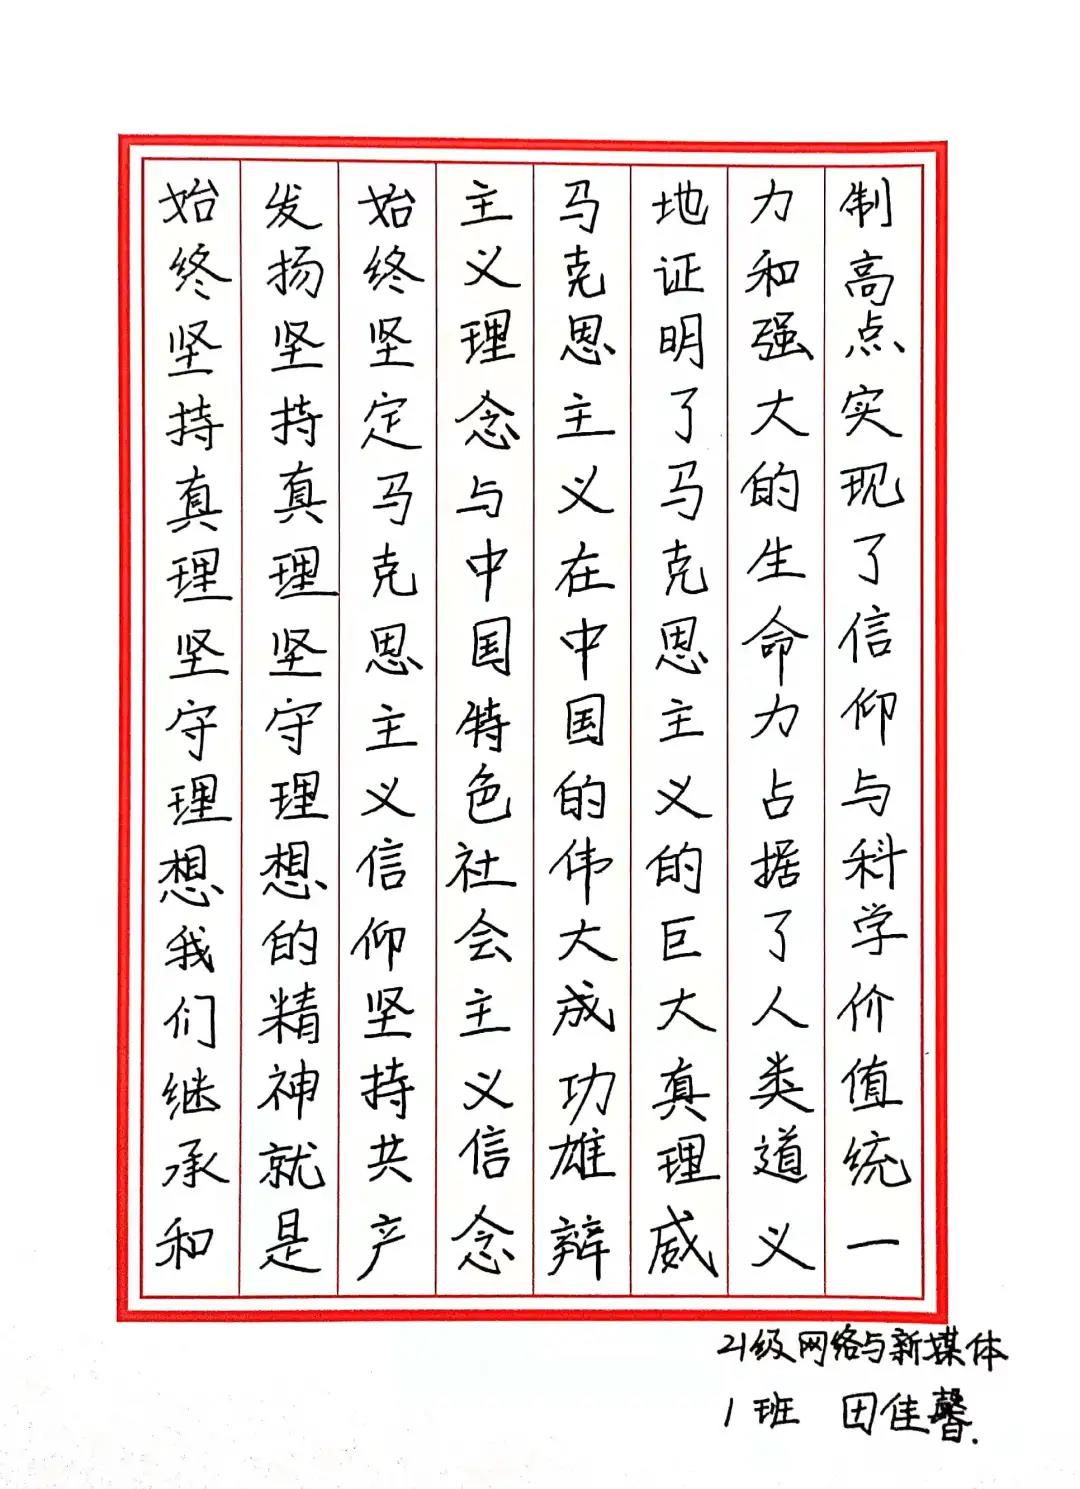 始终坚持真理坚守理想我们继承和
发扬坚持真理坚守理想的精神就是
始终坚定马克思主义信仰坚持共产
主义理念与中国特色社会主义信念
马克思主义在中国的伟大成功雄辩
地证明了马克思主义的巨大真理威
力和强大的生命力占据了人类道义
制高点实现了信仰与科学价值统一
21级网络与新媒体
1班 田佳馨.